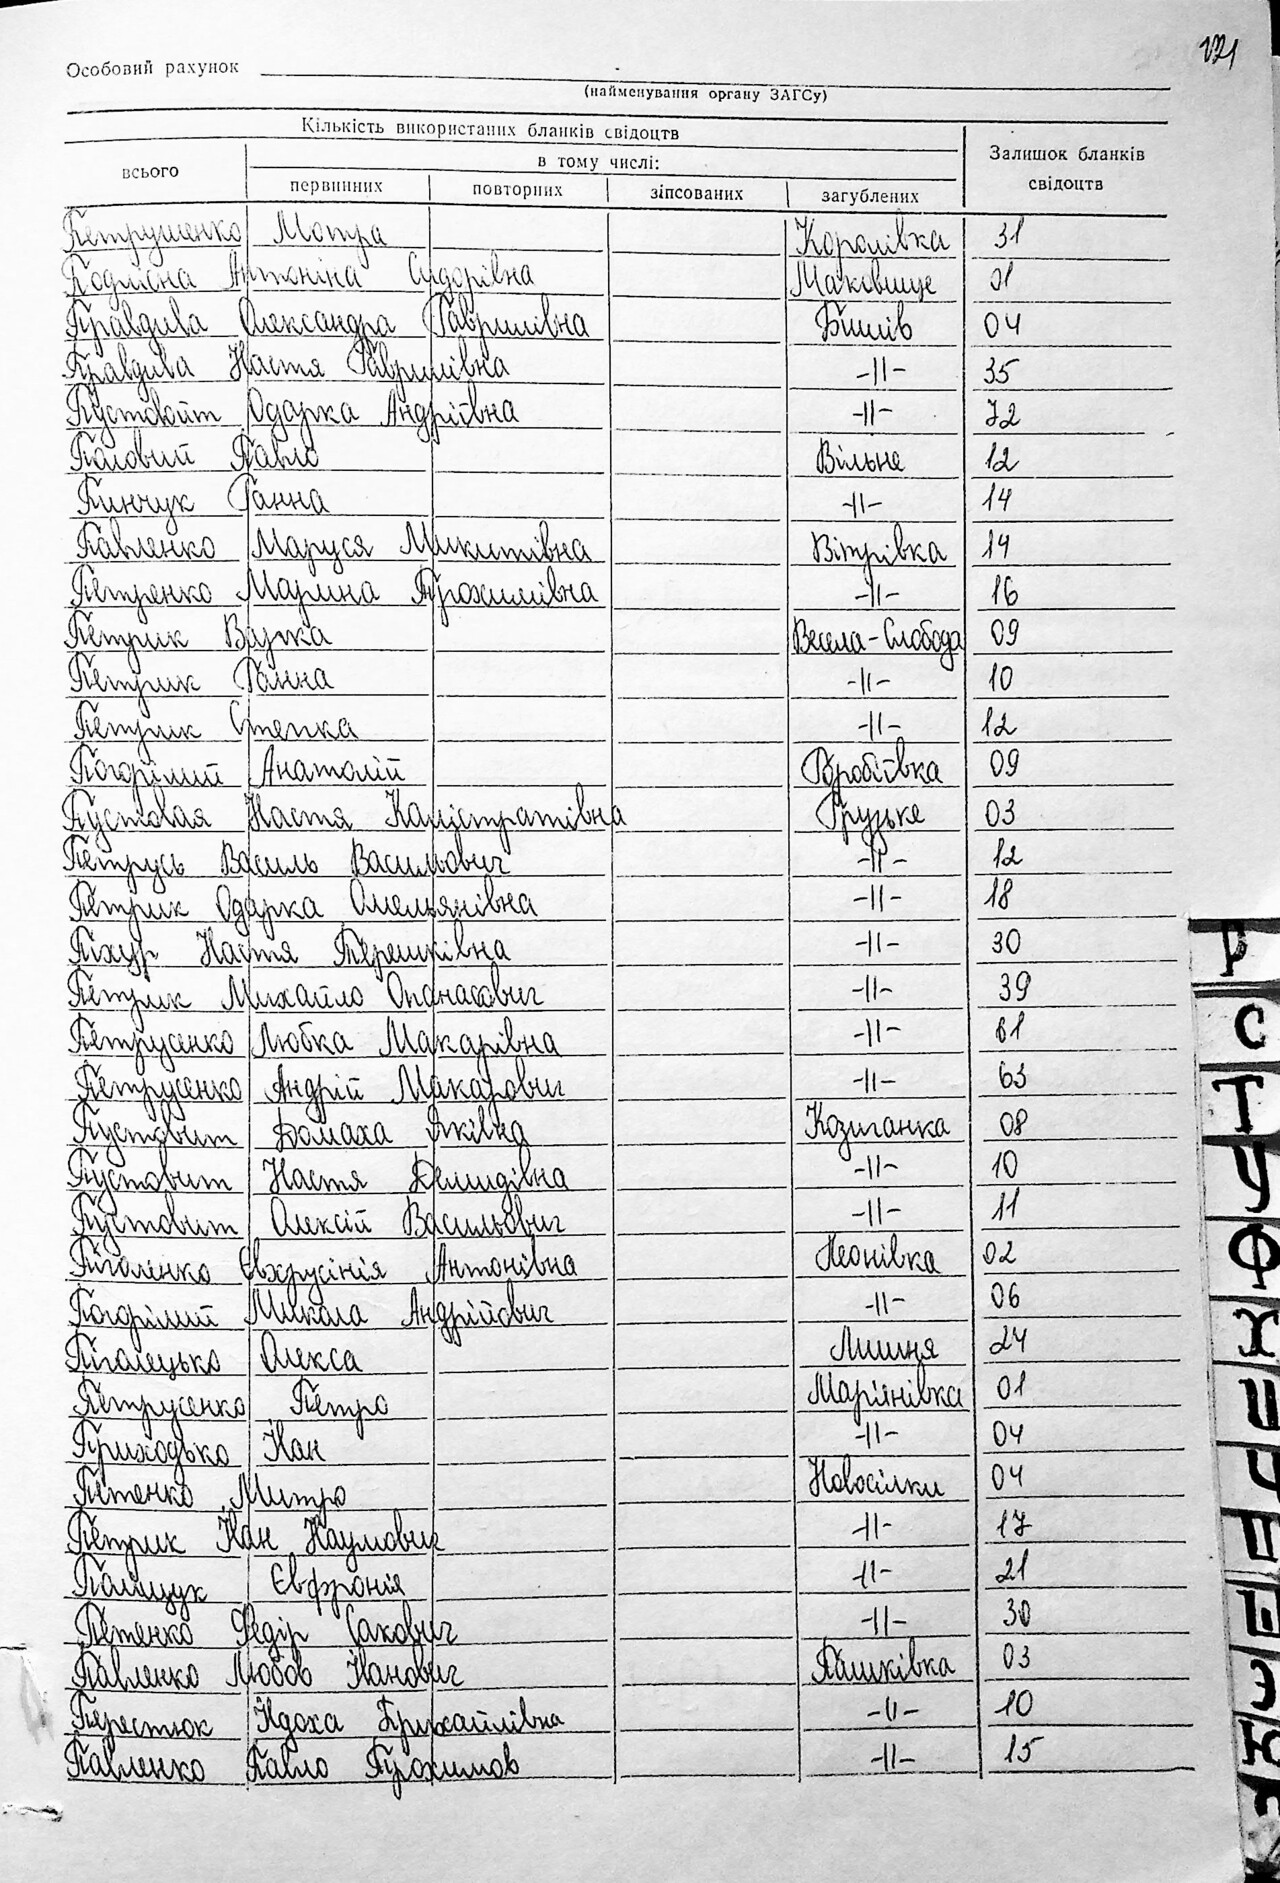 171
Особовий рахунок
(найменування органу ЗАГСу)
Кількість використаних бланків свідоцтв
Залишок бланків свідоцтв
всього
в тому числі:
первинних повторних зіпсованих загублених
Петрушенко Мотра Королівка 31
Подлісна Антоніна Сидорівна Маковище 01
Правдива Олександра Гаврилівна Бишів 04
Правдива Настя Гаврилівна -||- 35
Пустовойт Одарка Андріївна -||- 72
Половий Павло Вільне 12
Пинчук Ганна -||- 14
Павленко Маруся Микитівна Вітрівка 14
Петренко Марина Прохилівна -||- 16
Петрик Варка Весела-Слобода 09
Петрик Ганна -||- 10
Петрик Степка -||- 12
Погорілий Анатолій Вробіївка 09
Пустовая Настя Калістратівна Грузьке 03
Петрусь Василь Васильович -||- 12
Петрик Одарка Омельянівна -||- 18
Піхур Настя Терешківна -||- 30
Петрик Михайло Опанасович -||- 39
Петрусенко Любка Макарівна -||- 61
Петрусенко Андрій Макарович -||- 63
Пустовит Домаха Яківна Козичанка 08
Пустовит Настя Демидівна -||- 10
Пустовит Олексій Васильович -||- 11
Піголенко Євхрусінія Антонівна Леонівка 02
Погорілий Микола Андрійович -||- 06
Піголецько Олекса Лишня 24
Петрусенко Петро Мар'янівка 01
Приходько Іван -||- 04
Петенко Митро Новосілки 04
Петрик Іван Наумович -||- 17
Палищук Євфронія -||- 21
Петенко Федір Сакович -||- 30
Павленко Любов Іванович Пашківка 03
Перестюк Ядоха -||- 10
Павленко Павло Прохимов -||- 15
Р
С
Т
У
Ф
Х